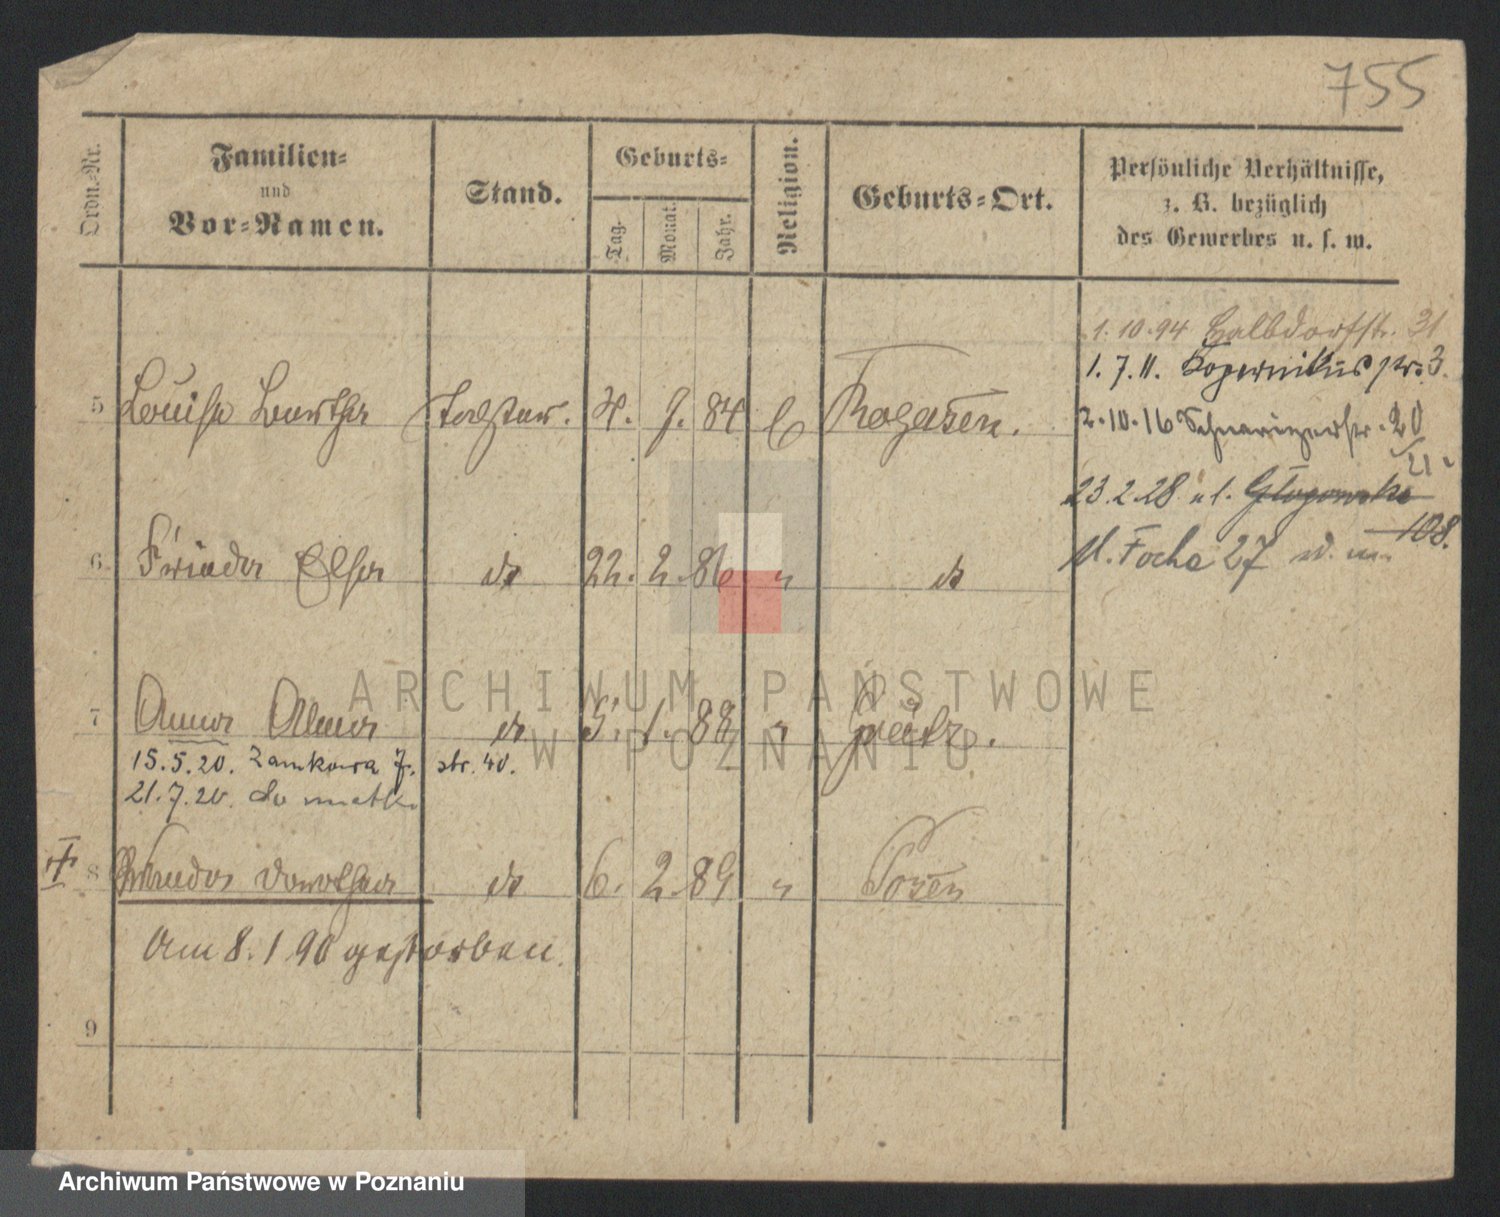 755
Ordn.-Nr.
Familien-
und
Vor-Namen.
Stand.
Geburts-
Tag.
Monat.
Jahr.
Religion.
Geburts-Ort.
Persönliche Verhältnisse,
z. B. bezüglich
des Gewerbes u. s. w.
1.10.94 Halbdorfstr. 31
1.7.11. Kopernikus str. 3.
5 Louise Bertha Tochter. 84 Rogasen.
2.10.16 20
21
23.2.28 ul. Głogowska
108.
6. Frieda Elsa do 22. 2. 86 " do
Focha 27
7 Anna Alma do 5. 1. 88 " Graetz.
15.5.20. Zamkowa 7. str. 40.
21.7.20. do matki
8 Dorothea do 6. 2. 89 " Posen
Am 8.1 90 gestorben.
9
ARCHIWUM PAŃSTWOWE
W POZNANIU
Archiwum Państwowe w Poznaniu